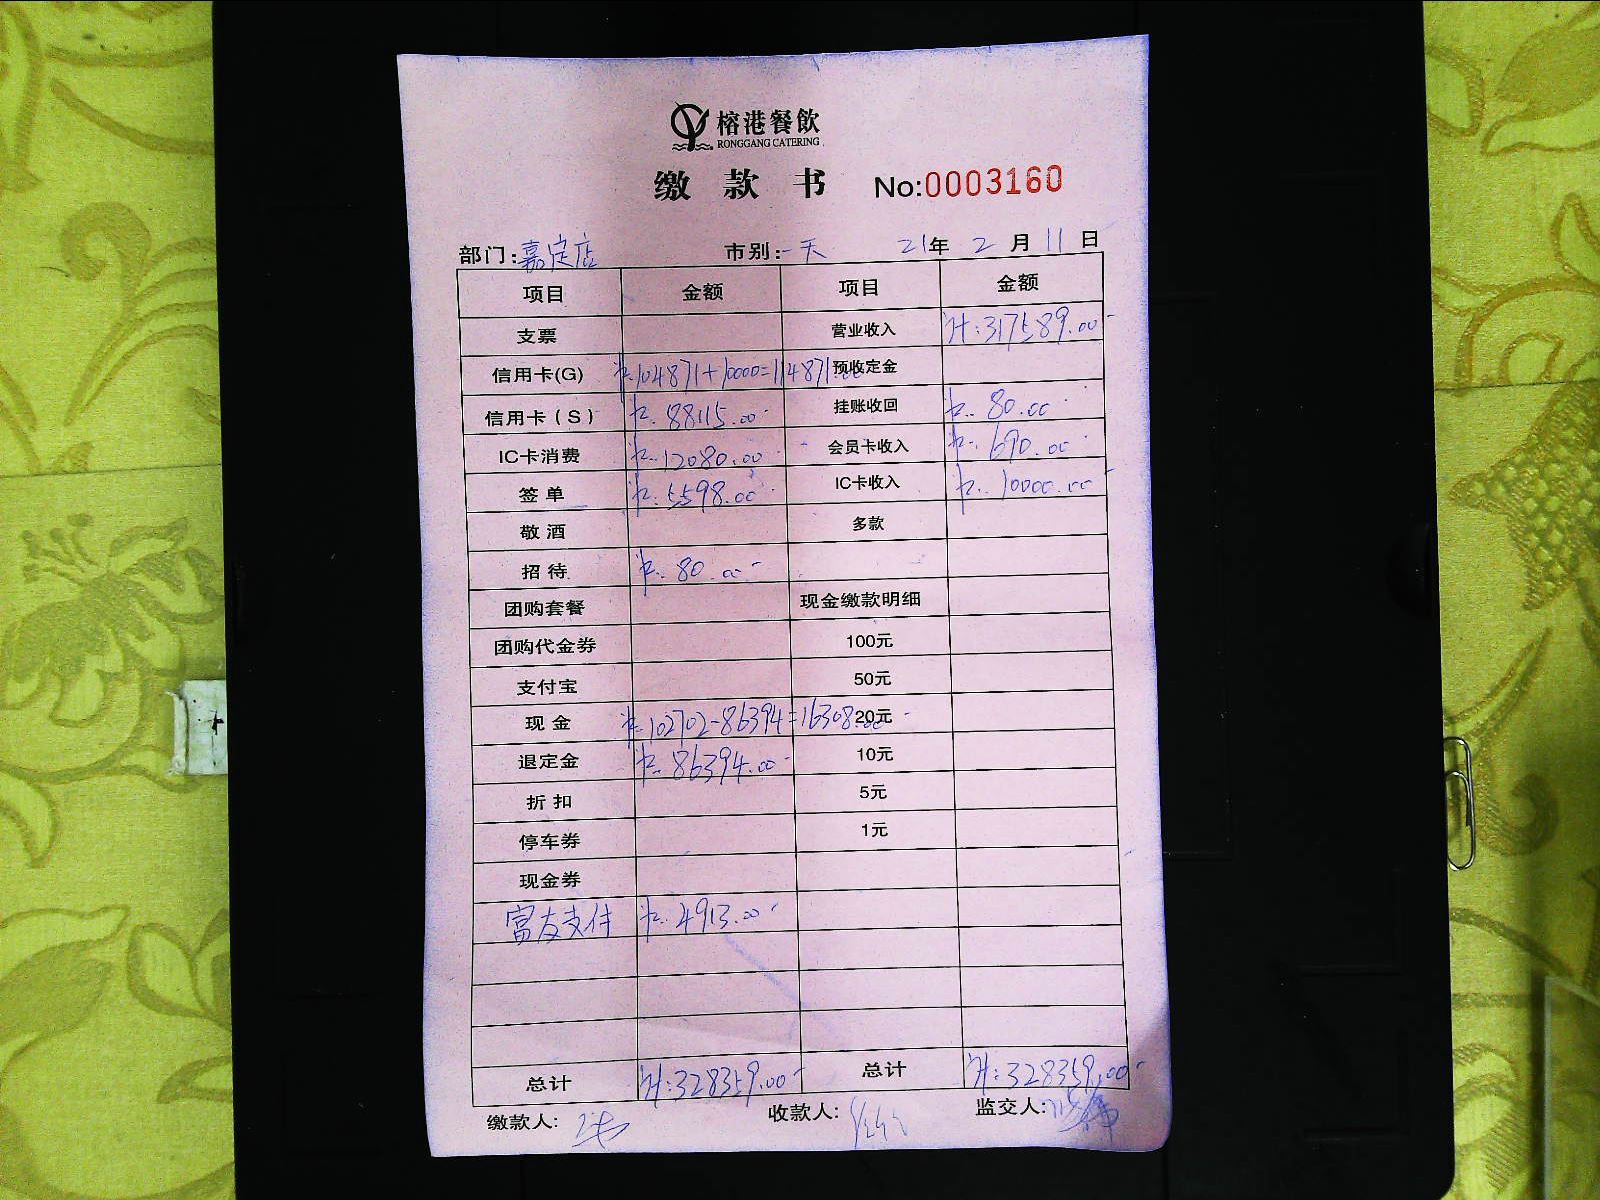 榕港餐飲
RONGGANG CATERING
缴款书 No:0003160
部门:嘉定店 市别:一天 21年2月11日
项目 金额 项目 金额
支票 营业收入 计:317589.00
信用卡(G) 104871+10000=114871.00 预收定金
信用卡(S) 88115.00 挂账收回 80.00
IC卡消费 12080.00 会员卡收入 690.00
签单 5598.00 IC卡收入 10000.00
敬酒 多款
招待 80.00
团购套餐 现金缴款明细
团购代金券 100元
支付宝 50元
现金 102702-86394=16308.00 20元
退定金 86394.00 10元
折扣 5元
停车券 1元
现金券
富友支付 4913.00
总计 计:328359.00 总计 计:328359.00
缴款人: 收款人: 监交人: